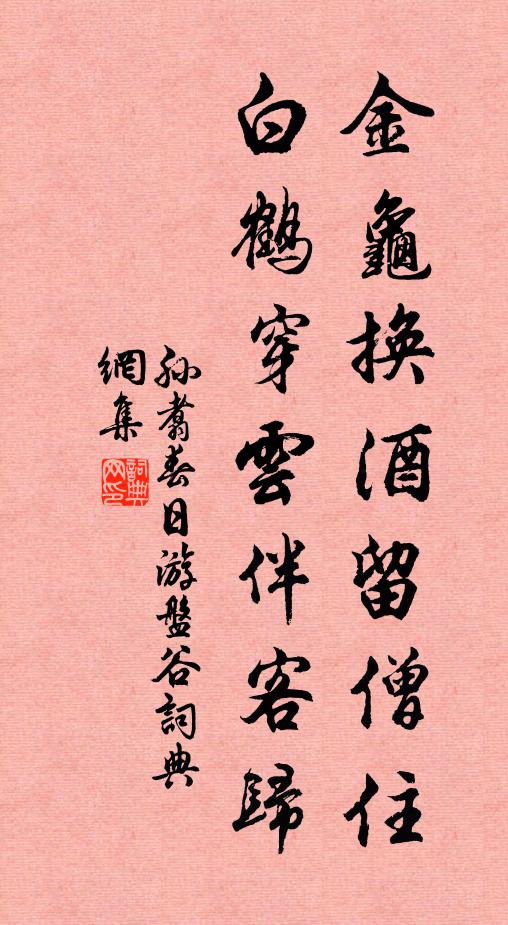 金龜換酒留僧住
白鶴穿雲伴客歸
孙翥春日游盤谷詞典
網集
詞典
网印